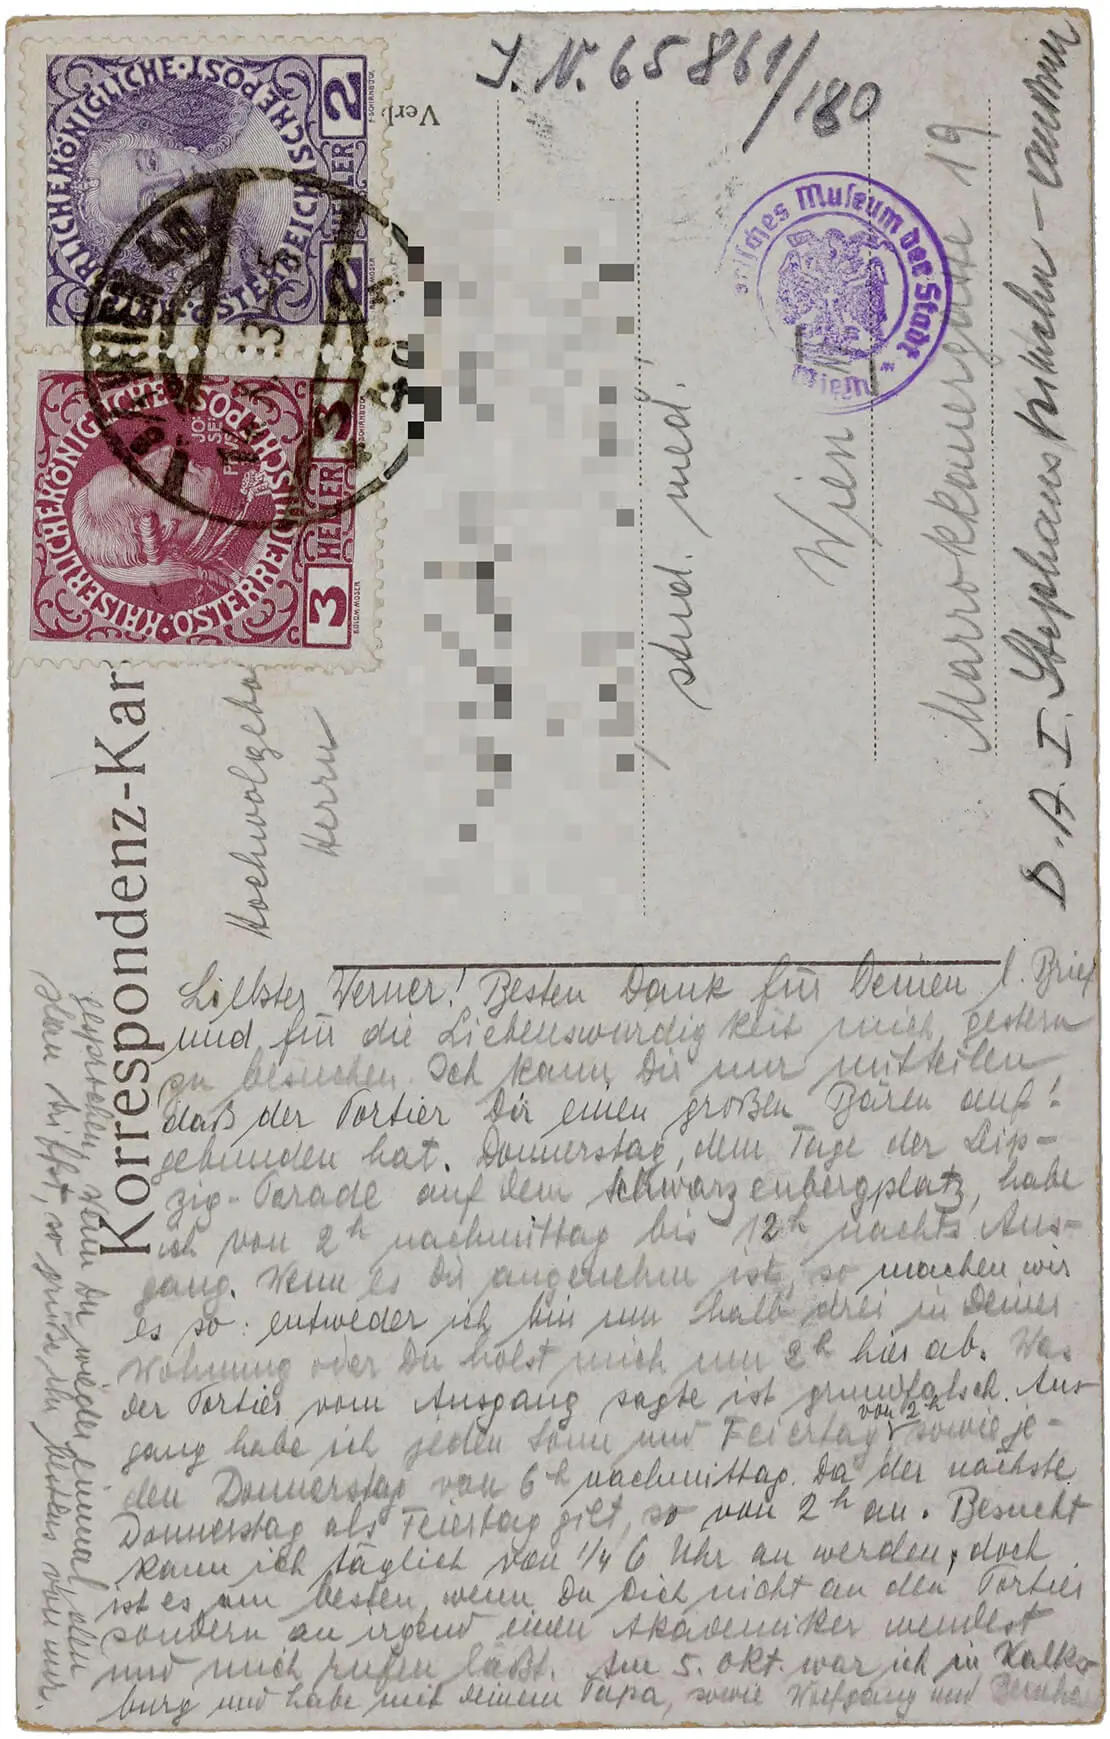 J. N. 65861/180
Verl
KAISERLICHE KÖNIGLICHE ÖSTERREICHISCHE POST
2 HELLER 2
KAISERLICHE KÖNIGLICHE ÖSTERREICHISCHE POST
3 HELLER 3
Korrespondenz-Kar
Hochwolgebo
Herrn
stud. med.
Wien
Marrokkanergasse 19
D. A. I. Stephans
risches Museum der Stadt Wien
Liebster Werner! Besten Dank für Deinen l. Brief
und für die Liebenswürdigkeit, mich gestern
zu besuchen. Ich kann Dir nur mitteilen
daß der Portier Dir einen großen Bären auf!
gebunden hat. Donnerstag, dem Tage der Leip-
zig-Parade auf dem Schwarzenbergplatz, habe
ich von 2h nachmittag bis 12h nachts Aus-
gang. Wenn es Dir angenehm ist, so machen wir
es so: entweder ich bin um halb drei in Deiner
Wohnung oder Du holst mich um 2h hier ab. Was
der Portier vom Ausgang sagte ist grundfalsch. Aus-
gang habe ich jeden Sonn und Feiertag von 2h sowie je-
den Donnerstag von 6h nachmittag. Da der nächste
Donnerstag als Feiertag gilt, so von 2h an. Besucht
kann ich täglich von 1/4 6 Uhr an werden, doch
ist es am besten, wenn Du Dich nicht an den Portier
sondern an irgend einen Akademiker wendest
und mich rufen läßt. Am 5. Okt. war ich in Kalks-
burg und habe mit deinem Papa, sowie Wolfgang und
gesprochen. Wenn Du wieder einmal den
triffst, so grüße ihn bestens von mir.